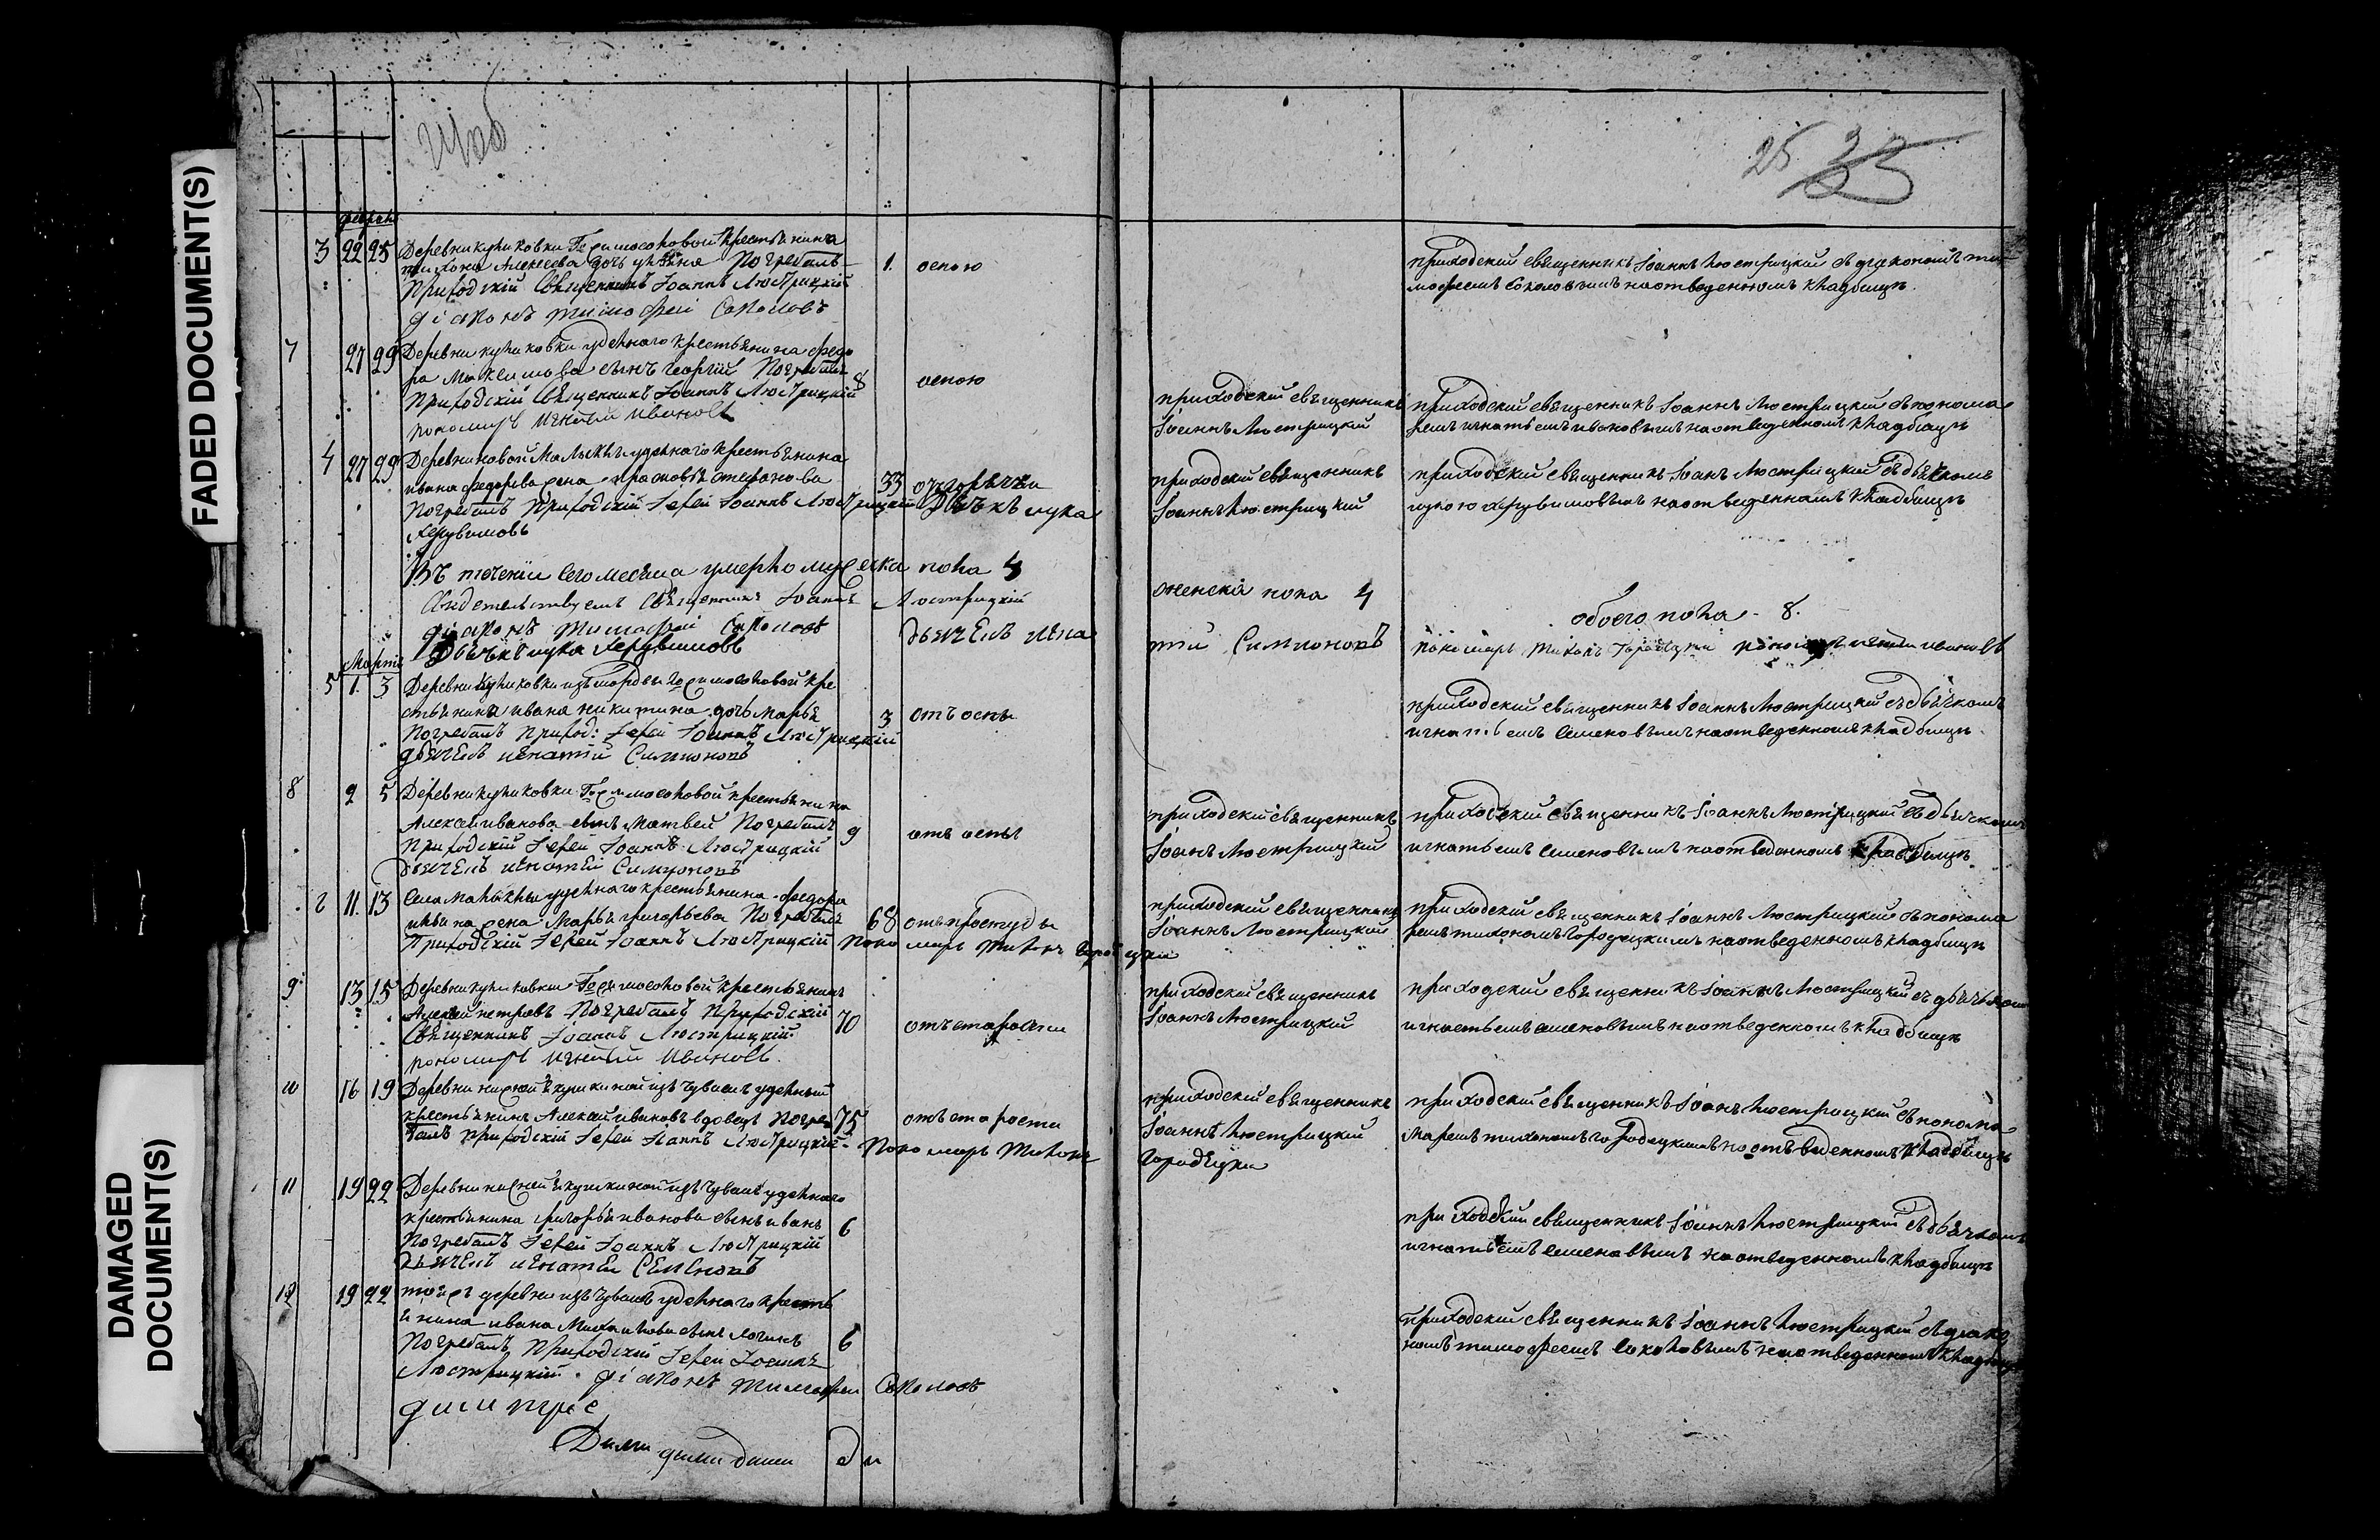 FADED DOCUMENT(S)
DAMAGED DOCUMENT(S)
25 33
3 22 25 Деревни куликовки крестьянина
Тихона Алексеева дочь Погребалъ 1. оспою
Приходскій Священникъ Іоаннъ Люстрицкій
діаконъ тимофей Соколовъ
приходский священникъ Іоаннъ Люстрицкий съ диакономъ ти
мофеемъ Соколовымъ на отведенномъ кладбищѣ.
7 27 29 Деревни куликовки удѣлнаго крестьянина федо
ра Максимова сынъ Георгій Погребалъ 8 оспою
Приходскій Священникъ Іоаннъ Люстрицкій
пономарь Игнатій Ивановъ
приходской священникъ
Іоаннъ Люстрицкий
приходской священникъ Іоаннъ Люстрицкий съ понома
ремъ игнатьемъ ивановымъ на отведенномъ кладбищѣ
4 27 29 Деревни новой Малыклы удѣлнаго крестьянина
ивана федорова жена степанова 33 отъ горячки
Погребалъ Приходскій Іерей Іоаннъ Люстрицкій Дьячекъ лука
Херувимовъ
приходской священникъ
Іоаннъ Люстрицкий
приходской священникъ Іоанъ Люстрицкий съ дьячкомъ
лукою херувимовымъ на отведенномъ кладбищѣ
Въ теченіи сего месяца умерло мужеска пола 4
женска пола 4
обоего пола - 8.
Свидетельствуемъ Священникъ Іоаннъ Люстрицкій
діаконъ тимофей Соколовъ дьячекъ игна
тій Симионовъ
пономарь тихонъ Городецкій пономарь игнатій ивановъ
Дьячекъ лука Херувимовъ
Мартъ
5 1. 3 Деревни куликовки изъ мордвы кре
стьянина ивана никитина дочь Марья 3 отъ оспы
Погребалъ Приход: Іерей Іоаннъ Люстрицкій
дьячекъ игнатій Симионовъ
приходской священникъ Іоаннъ Люстрицкий съ дьячкомъ
игнатьемъ Семеновымъ на отведенномъ кладбищѣ.
8 2 5 Деревни куликовки крестьянина
Алексея иванова сынъ Матвей Погребалъ 9 отъ оспы
Приходскій Іерей Іоаннъ Люстрицкій
дьячекъ игнатій Симионовъ
приходской священникъ
Іоанъ Люстрицкий
приходской священникъ Іоаннъ Люстрицкий съ дьячкомъ
игнатьемъ Семеновымъ на отведенномъ кладбищѣ.
6 11. 13 Села Малыклы удѣлнаго крестьянина федора
ильина жена Марья григорьева Погребалъ 68 отъ простуды
Приходскій Іерей Іоаннъ Люстрицкій Пономарь Тихонъ Городецкій
приходской священникъ
Іоаннъ Люстрицкий
приходской священникъ Іоаннъ Люстрицкий съ понома
ремъ тихономъ Городецкимъ на отведенномъ кладбищѣ
9 13 15 Деревни куликовки крестьянинъ
Алексей петровъ Погребалъ Приходскій 70 отъ старости
Священникъ Іоаннъ Люстрицкій.
пономарь Игнатій Ивановъ.
приходской священникъ
Іоаннъ Люстрицкий
приходской священникъ Іоаннъ Люстрицкий съ дьячкомъ
игнатьемъ семеновымъ на отведенномъ кладбищѣ
10 16 19 Деревни нижней якушкиной изъ чувашъ удѣлный
крестьянинъ Алексей ивановъ вдовецъ Погре 75 отъ старости
балъ Приходскій Іерей Іоаннъ Люстрицкій - Пономарь Тихонъ
Городецкій
приходской священникъ
Іоаннъ Люстрицкий
приходской священникъ Іоанъ Люстрицкий съ понома
маремъ тихономъ городецкимъ на отведенномъ кладбищѣ
11 19 22 Деревни нижней якушкиной изъ чувашъ удѣлнаго
крестьянина григорья иванова сынъ иванъ 6
Погребалъ Іерей Іоаннъ Люстрицкій
дьячекъ игнатій Семеновъ
приходской священникъ Іоаннъ Люстрицкий съ дьячкомъ
игнатьемъ семеновымъ на отведенномъ кладбищѣ
12 19 22 тойже деревни изъ чувашъ удѣлнаго кресть
янина ивана Михаилова сынъ логинъ 6
Погребалъ Приходскій Іерей Іоаннъ
Люстрицкій. діаконъ тимофей Соколовъ
приходской священникъ Іоаннъ Люстрицкий съ диако
номъ тимофеемъ соколовымъ на отведенномъ кладбищѣ